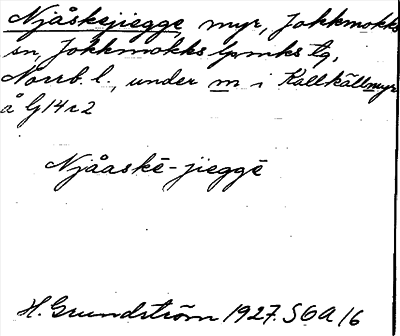 Njåskejiegge, myr, Jokkmokks
sn, Jokkmokks lpmks tg,
Norrb. l., under m i Kallkällmyr
å G14 r2
Njåaskē-jieggē
H. Grundström 1927. SOA 16